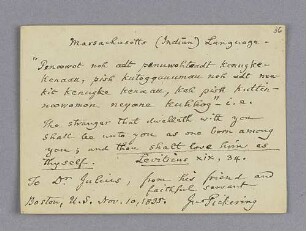 36
Massachusetts (Indian) Language.
"Penowot noh adt
kenaau, pish kutogquunnau noh adt
kit kenugke kenaau, kah pish kuttin-
neawomon neyane kuhhog" - i.e.
The stranger that dwelleth with you
shall be unto you as one born among
you; and thou shalt love him as
thyself. Leviticus xix, 34.
To Dr. Julius, from his friend and
faithful servant
Boston, U.S. Nov. 10, 1835. Jn° Pickering